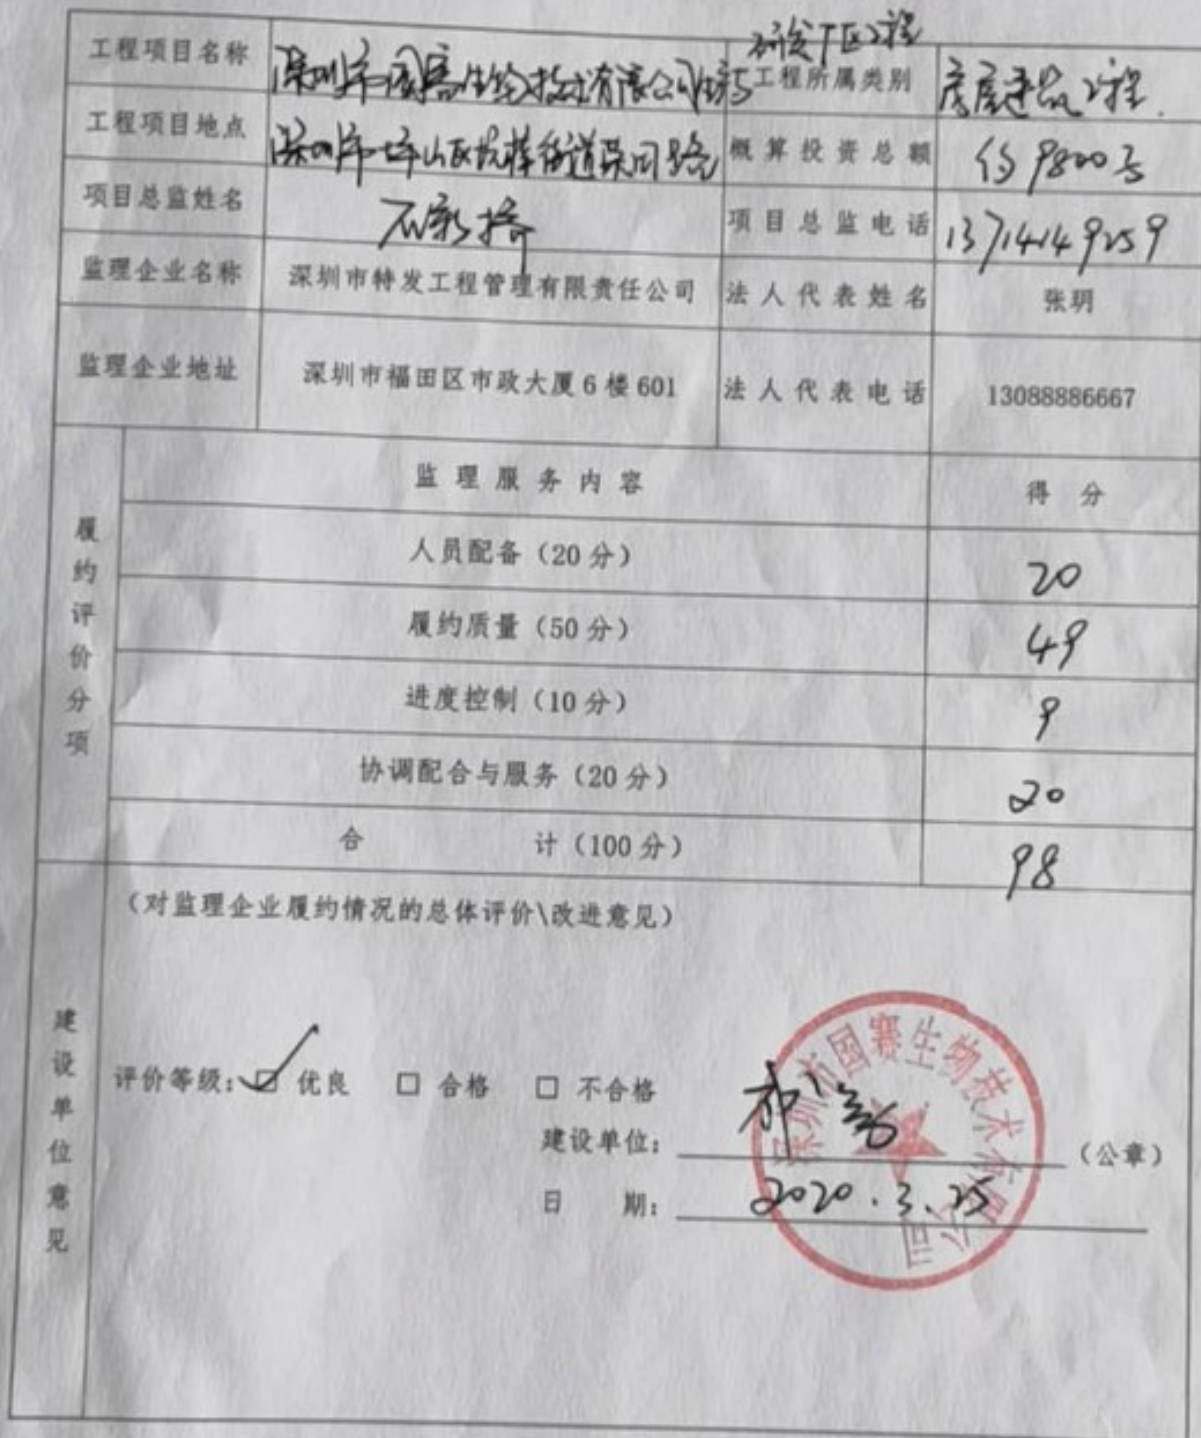 研发厂区工程
工程项目名称 深圳市国赛生物技术有限公司 工程所属类别 房屋建筑工程.
工程项目地点 深圳市坪山区坑梓街道 同路 概算投资总额 约9800万
项目总监姓名 石新 项目总监电话 13714149259
监理企业名称 深圳市特发工程管理有限责任公司 法人代表姓名 张玥
监理企业地址 深圳市福田区市政大厦6楼601 法人代表电话 13088886667
履约评价分项
监理服务内容 得分
人员配备（20分） 20
履约质量（50分） 49
进度控制（10分） 9
协调配合与服务（20分） 20
合计（100分） 98
建设单位意见
（对监理企业履约情况的总体评价\改进意见）
评价等级：☑ 优良 □ 合格 □ 不合格
建设单位： （公章）
日期：2020.3.25
深圳市国赛生物技术有限公司